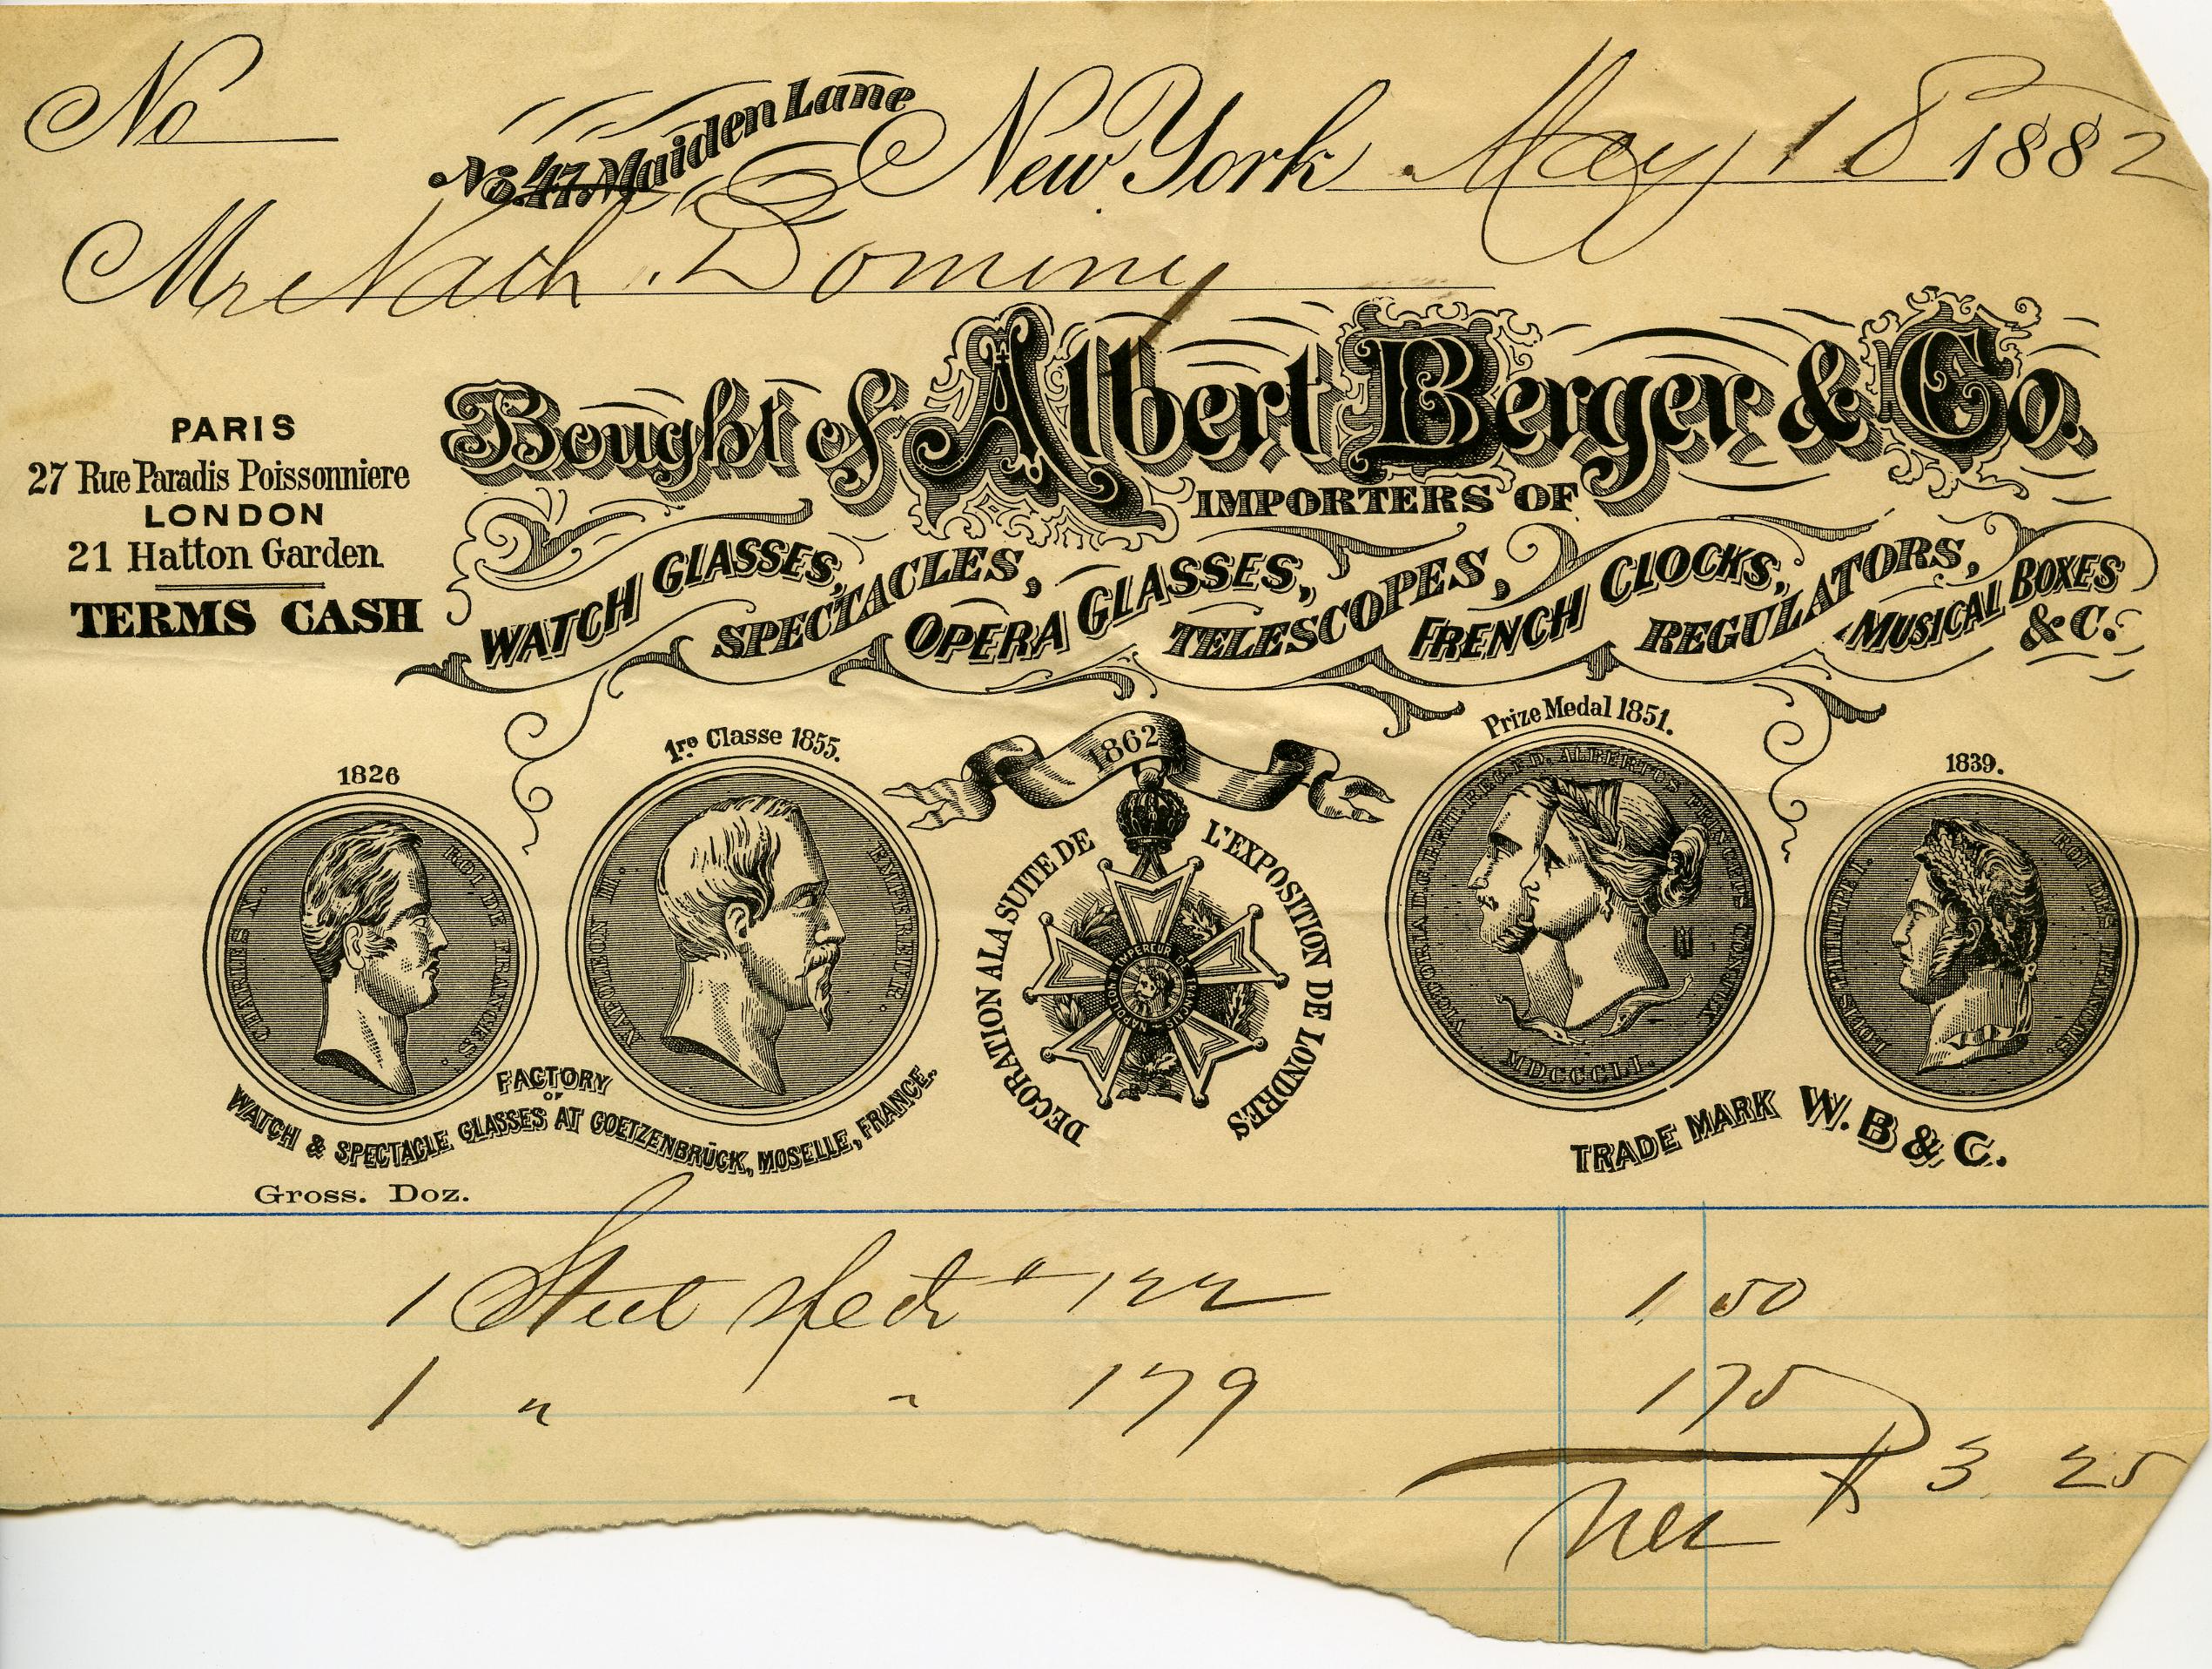 No
No. 47 Maiden Lane New York May 18 1882
Mr Nath. Dominy
Bought of Albert Berger & Co.
IMPORTERS OF
WATCH GLASSES, SPECTACLES, OPERA GLASSES, TELESCOPES, FRENCH CLOCKS, REGULATORS, MUSICAL BOXES &C.
PARIS
27 Rue Paradis Poissonniere
LONDON
21 Hatton Garden
TERMS CASH
1826
CHARLES X. ROI DE FRANCE
1re Classe 1855.
NAPOLEON III. EMPEREUR.
1862
DECORATION A LA SUITE DE L'EXPOSITION DE LONDRES
NAPOLEON EMPEREUR DES FRANCAIS
Prize Medal 1851.
VICTORIA D.G. BRIT. REG. F.D. ALBERTUS PRINCEPS CONJUX
MDCCCLI.
1839.
LOUIS PHILIPPE I. ROI DES FRANÇAIS.
FACTORY
OF
WATCH & SPECTACLE GLASSES AT GOETZENBRÜCK, MOSELLE, FRANCE.
TRADE MARK W. B & C.
Gross. Doz.
1 Steel Specs # 122 1 50
1 " " 179 1 75
Net $ 3 25